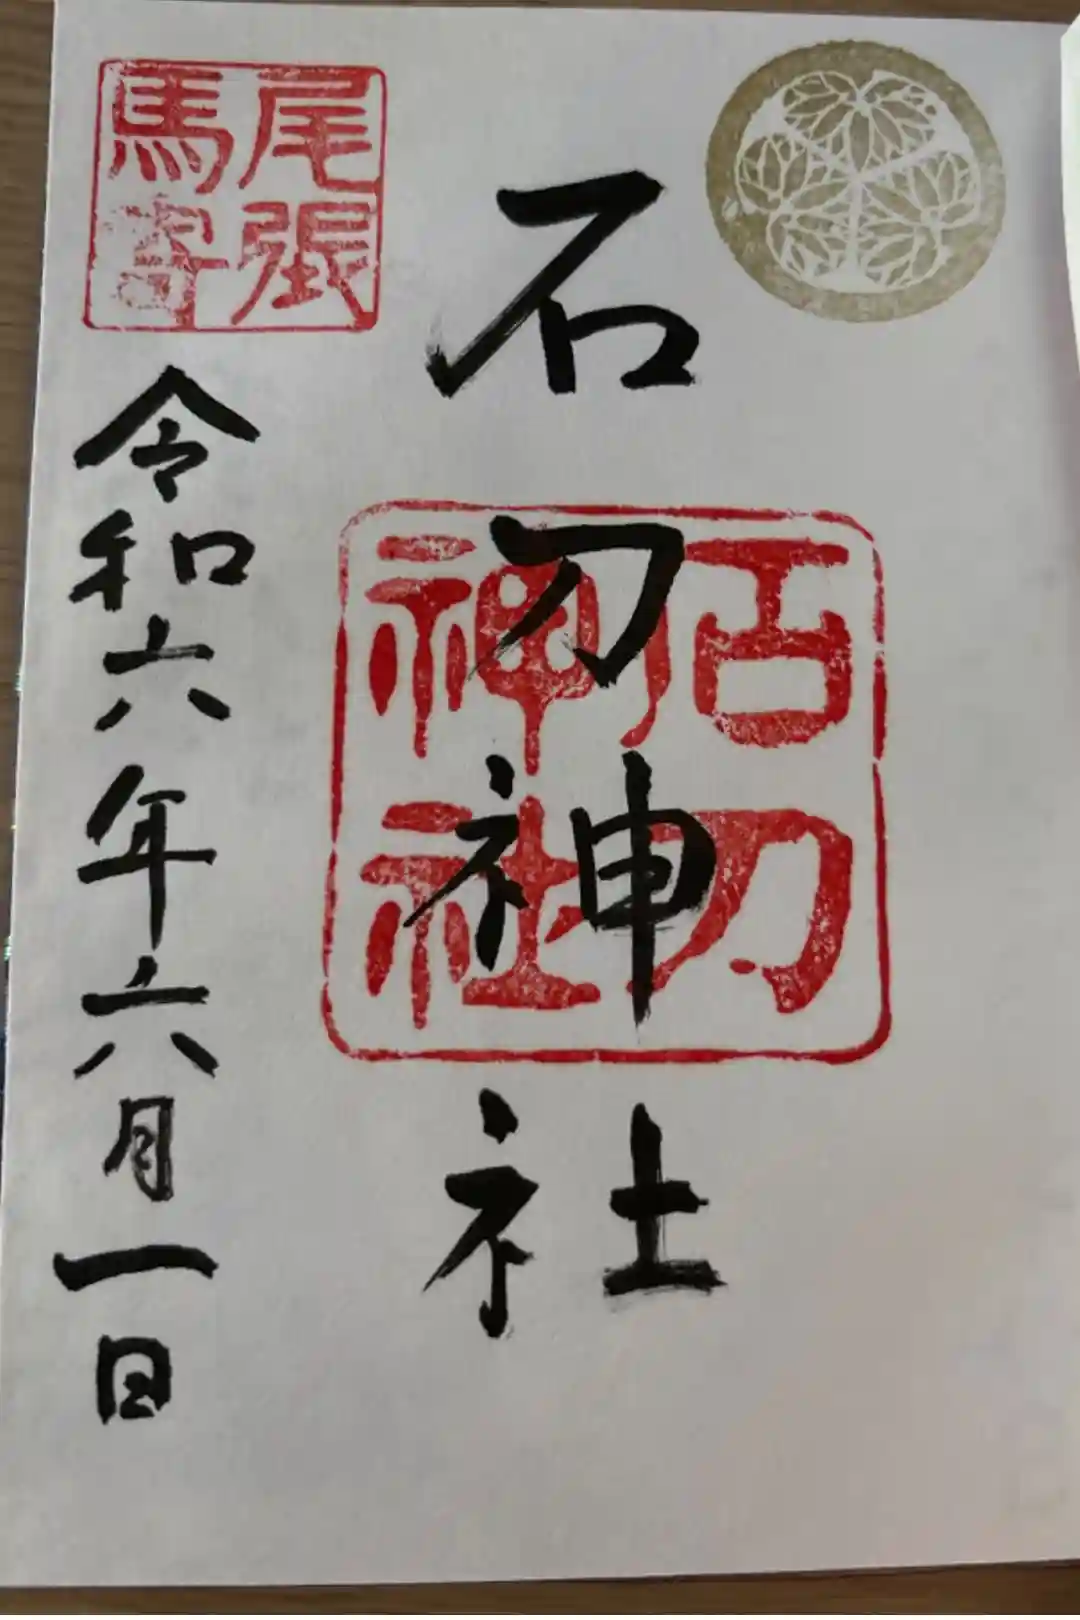 石刀神社
石刀
神社
尾張
馬寄
令和六年六月一日